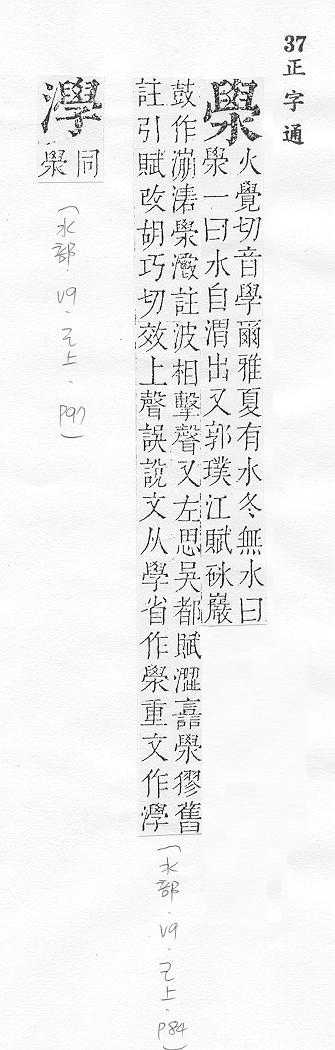 37正字通
澩
火覺切音學爾雅夏有水冬無水曰
澩一曰水自渭出又郭璞江賦砯巖
鼓作漰湱澩灂註波相擊聲又左思吳都賦澀譶澩㺒舊
註引賦改胡巧切效上聲誤說文从學省作澩重文作㶅
(水部．V9．巳上．P84)
㶅
同
澩
(水部．V9．巳上．P97)